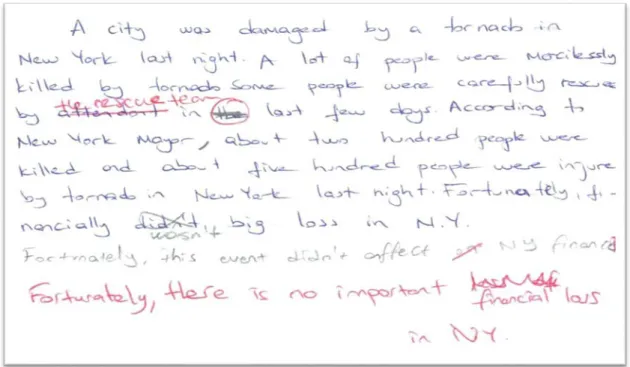 A city was damaged by a tornado in
New York last night. A lot of people were mercilessly
killed by tornado some people were carefully rescue
the rescue team
by attendant in the last few days. According to
New York Mayor, about two hundred people were
killed and about five hundred people were injure
by tornado in New York last night. Fortunately, fi-
nancially didn't big loss in N.Y.
wasn't
Fortnately, this event didn't affect NY financi
Fortunately, there is no important financial loss
in NY.